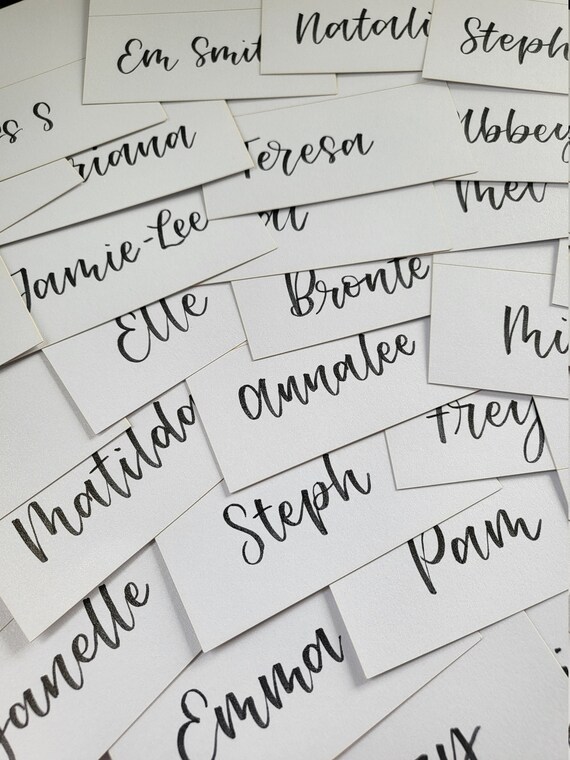 Em Smit
Natali
Steph
es S
riana
Teresa
Abbey
Mel
Jamie-Lee
Elle
Bronte
Mi
Annalee
Frey
Matilda
Steph
Pam
Janelle
Emma